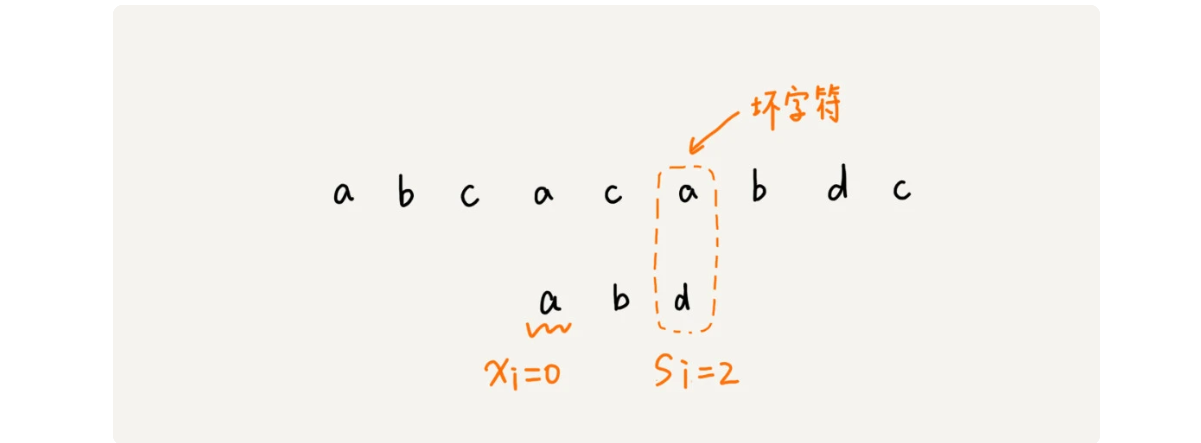 坏字符
a b c a c a b d c
a b d
xi=0 Si=2